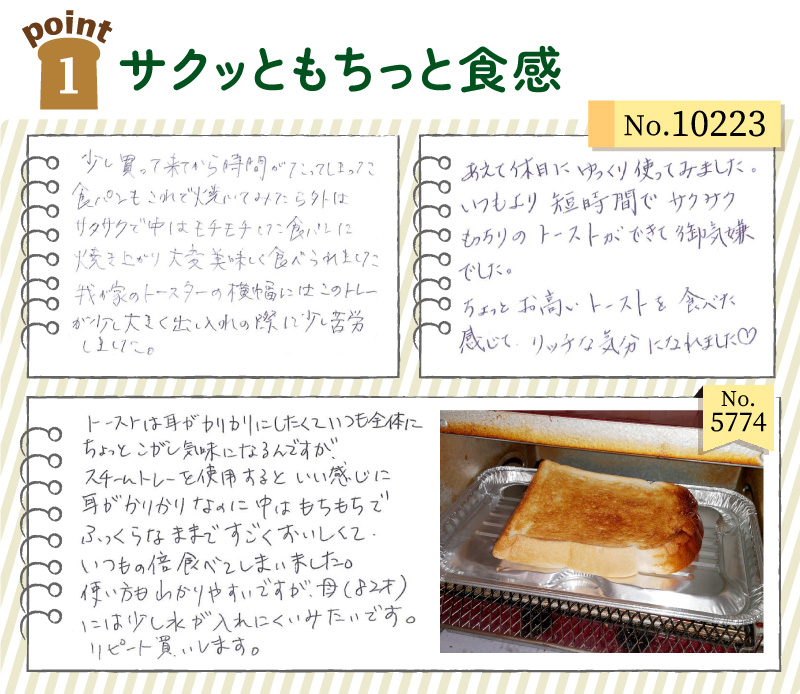 point
1
サクッともちっと食感
少し買って来てから時間がたってしまった
食パンもこれで焼いてみたら外は
サクサクで中はモチモチした食パンに
焼き上がり大変美味しく食べられました
我が家のトースターの横幅にはこのトレー
が少し大きく出し入れの際に少し苦労
しました。
No.10223
あえて休日にゆっくり使ってみました。
いつもより短時間でサクサク
もっちりのトーストができて御気嫌
でした。
ちょっとお高いトーストを食べた
感じで、リッチな気分になれました♡
トーストは耳がカリカリにしたくていつも全体に
ちょっとこがし気味になるんですが、
スチームトレーを使用するといい感じに
耳がかりかりなのに中はもちもちで
ふっくらなままですごくおいしくて、
いつもの倍食べてしまいました。
使い方もわかりやすいですが、母(82才)
には少し水が入れにくいみたいです。
リピート買いします。
No.
5774